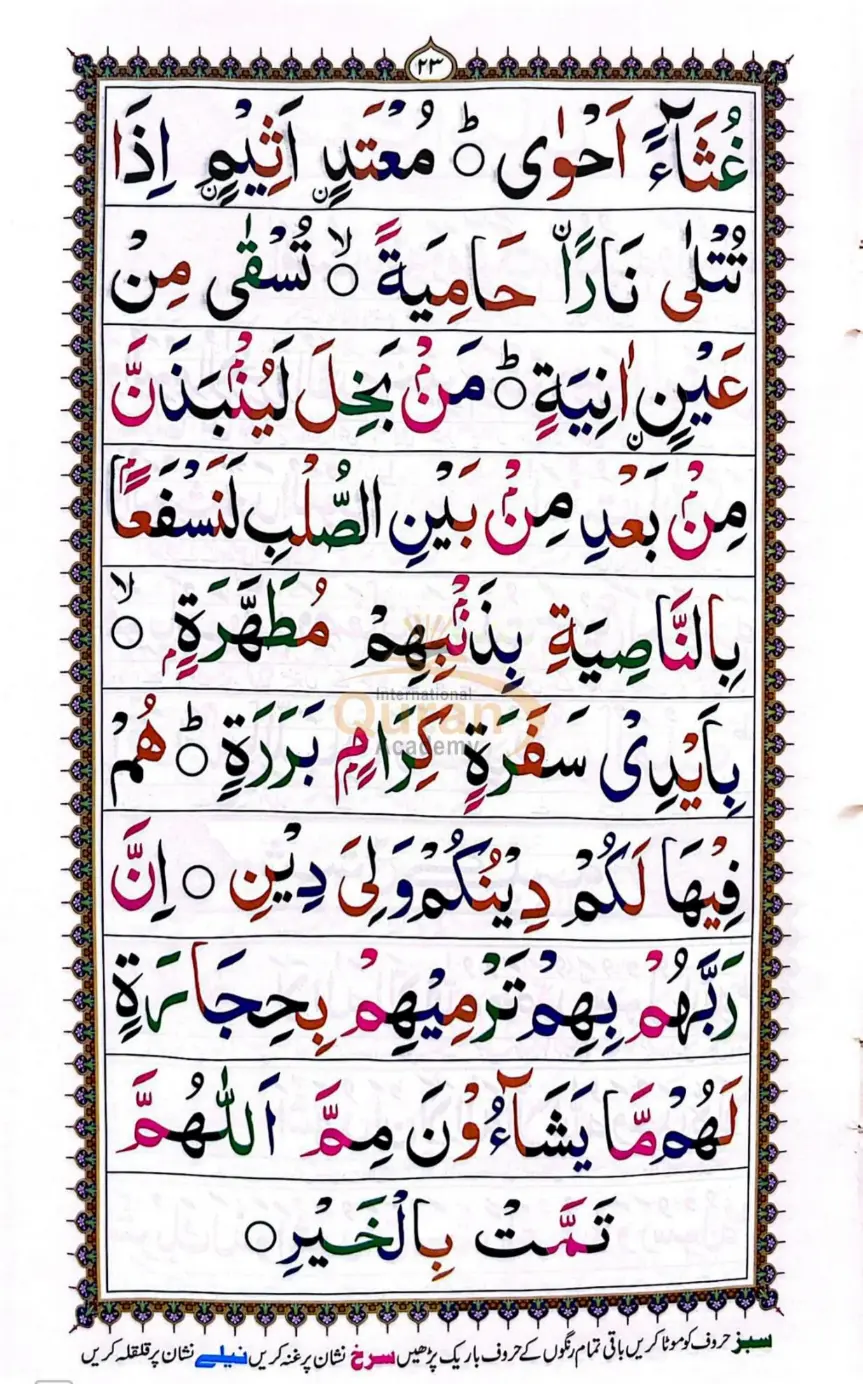 ٢٣
غُثَآءً اَحْوٰى ۝ؕ مُعْتَدٍ اَثِيْمٍ اِذَا
تُتْلٰى نَارًا حَامِيَةً ۝ۙ تُسْقٰى مِنْ
عَيْنٍ اٰنِيَةٍ ۝ؕ مَنْۢ بَخِلَ لَيُنْۢبَذَنَّ
مِنْۢ بَعْدِ مِنْۢ بَيْنِ الصُّلْبِ لَنَسْفَعًاۢ
بِالنَّاصِيَةِ بِذَنْۢبِهِمْ مُطَهَّرَةٍۭ ۝ۙ
بِاَيْدِىْ سَفَرَةٍ كِرَامٍۭ بَرَرَةٍ ۝ؕ هُمْ
فِيْهَا لَكُمْ دِيْنُكُمْ وَلِىَ دِيْنِ ۝ اِنَّ
رَبَّهُمْ بِهِمْ تَرْمِيْهِمْ بِحِجَارَةٍ
لَهُمْ مَّا يَشَآءُوْنَ مِمَّ اَللّٰهُمَّ
تَمَّتْ بِالْخَيْرِ ۝
International
Quran
Academy
سبز حروف کو موٹا کریں باقی تمام رنگوں کے حروف باریک پڑھیں سرخ نشان پر غنہ کریں نیلے نشان پر قلقلہ کریں